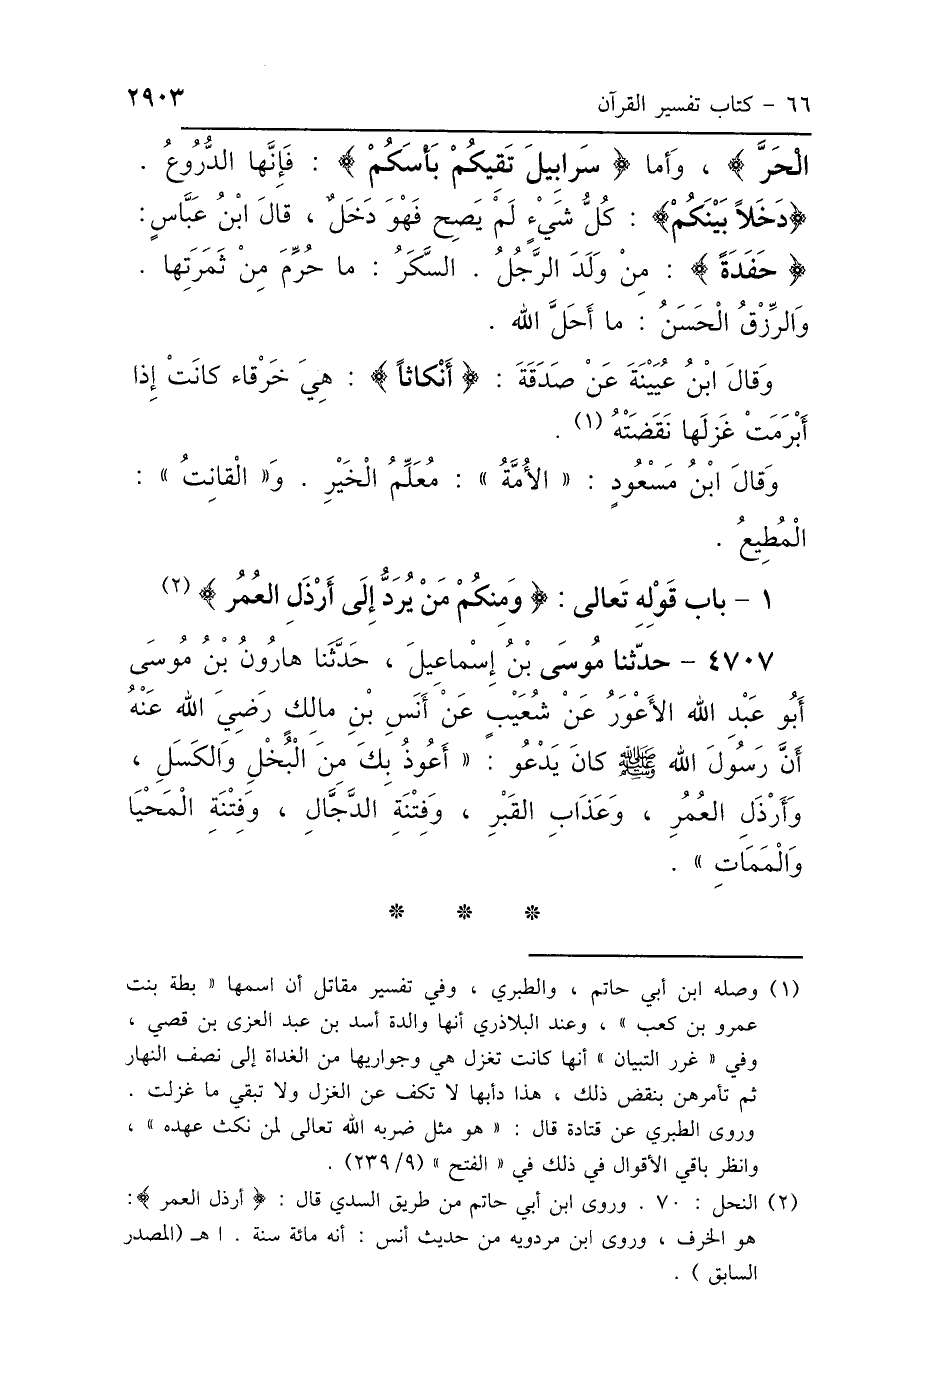 ٦٦ - كتاب تفسير القرآن ٢٩٠٣
الْحَرَّ ﴾ ، وَأما ﴿ سَرابِيلَ تَقِيكُمْ بَأْسَكُمْ ﴾ : فَإِنَّها الدُّرُوعُ .
﴿دَخَلاً بَيْنَكُمْ﴾ : كُلُّ شَيْءٍ لَمْ يَصِح فَهْوَ دَخَلٌ ، قالَ ابْنُ عَبَّاسٍ:
﴿ حَفَدَةً ﴾ : مِنْ وَلَدَ الرَّجُلُ . السَّكَرُ : ما حُرِّمَ مِنْ ثَمَرَتِها .
وَالرِّزْقُ الْحَسَنُ : ما أَحَلَّ الله .
وَقالَ ابْنُ عُيَيْنَةَ عَنْ صَدَقَةَ : ﴿ أَنْكاثاً ﴾ : هِيَ خَرْقاء كانَتْ إِذا
أَبْرَمَتْ غَزلَها نَقَضَتْهُ (١) .
وَقالَ ابْنُ مَسْعُودٍ : « الأُمَّةُ » : مُعَلِّمُ الْخَيْرِ . وَ« الْقانِتُ » :
الْمُطِيعُ .
١ - باب قَوْلِهِ تَعالى : ﴿ وَمِنكُمْ مَنْ يُرَدُّ إِلَى أَرْذَلِ العُمُرِ ﴾ (٢)
٤٧٠٧ - حدّثنا مُوسَى بْنُ إِسْماعِيلَ ، حَدَّثَنا هارُونُ بْنُ مُوسَى
أَبُو عَبْدِ الله الأَعْوَرُ عَنْ شُعَيْبٍ عَنْ أَنَسِ بْنِ مالِكٍ رَضِيَ الله عَنْهُ
أَنَّ رَسُولَ الله ﷺ كانَ يَدْعُو : « أَعُوذُ بِكَ مِنَ الْبُخْلِ وَالكَسَلِ ،
وَأَرْذَلِ العُمُرِ ، وَعَذَابِ القَبْرِ ، وَفِتْنَةِ الدَّجَّالِ ، وَفِتْنَةِ الْمَحْيَا
وَالْمَمَاتِ » .
* * *
(١) وصله ابن أبي حاتم ، والطبري ، وفي تفسير مقاتل أن اسمها « بطة بنت
عمرو بن كعب » ، وعند البلاذري أنها والدة أسد بن عبد العزى بن قصي ،
وفي « غرر التبيان » أنها كانت تغزل هي وجواريها من الغداة إلى نصف النهار
ثم تأمرهن بنقض ذلك ، هذا دأبها لا تكف عن الغزل ولا تبقي ما غزلت .
وروى الطبري عن قتادة قال : « هو مثل ضربه الله تعالى لمن نكث عهده » ،
وانظر باقي الأقوال في ذلك في « الفتح » (٢٣٩/٩) .
(٢) النحل : ٧٠ . وروى ابن أبي حاتم من طريق السدي قال : ﴿ أرذل العمر ﴾:
هو الخرف ، وروى ابن مردويه من حديث أنس : أنه مائة سنة . ا هـ (المصدر
السابق ) .